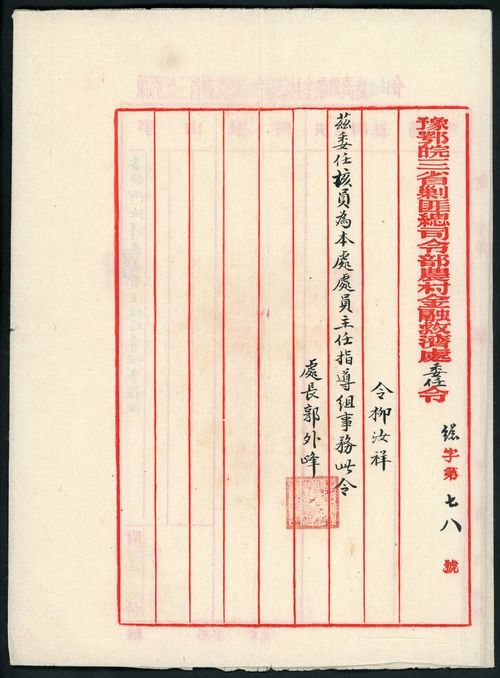 豫鄂皖三省剿匪總司令部農村金融救濟處委任令
總字第七八號
令柳汝祥
茲委任該員為本處處員主任指導組事務此令
處長郭外峰